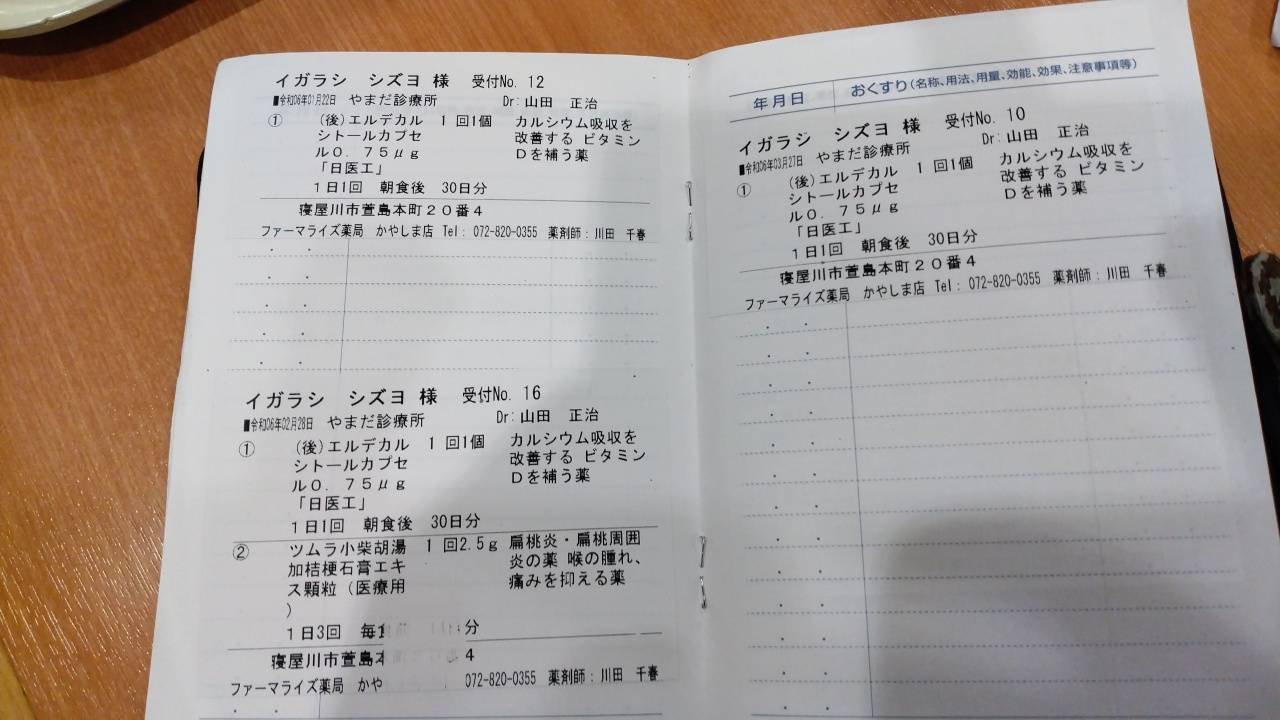 イガラシ　シズヨ 様　受付No. 12
■令和06年01月22日　やまだ診療所　Dr: 山田　正治
①　(後)エルデカル　1 回1個　カルシウム吸収を
シトールカプセ　改善する ビタミン
ル０．７５μｇ　Ｄを補う薬
「日医工」
１日1回　朝食後　30日分
寝屋川市萱島本町２０番４
ファーマライズ薬局　かやしま店　Tel: 072-820-0355　薬剤師: 川田　千春
イガラシ　シズヨ 様　受付No. 16
■令和06年02月28日　やまだ診療所　Dr: 山田　正治
①　(後)エルデカル　1 回1個　カルシウム吸収を
シトールカプセ　改善する ビタミン
ル０．７５μｇ　Ｄを補う薬
「日医工」
１日1回　朝食後　30日分
②　ツムラ小柴胡湯　1 回2.5ｇ　扁桃炎・扁桃周囲
加桔梗石膏エキ　炎の薬 喉の腫れ、
ス顆粒（医療用　痛みを抑える薬
）
１日3回　毎　分
寝屋川市萱島　４
ファーマライズ薬局　かや　072-820-0355　薬剤師: 川田　千春
年月日　おくすり(名称、用法、用量、効能、効果、注意事項等)
イガラシ　シズヨ 様　受付No. 10
■令和06年03月27日　やまだ診療所　Dr: 山田　正治
①　(後)エルデカル　1 回1個　カルシウム吸収を
シトールカプセ　改善する ビタミン
ル０．７５μｇ　Ｄを補う薬
「日医工」
１日1回　朝食後　30日分
寝屋川市萱島本町２０番４
ファーマライズ薬局　かやしま店　Tel: 072-820-0355　薬剤師: 川田　千春